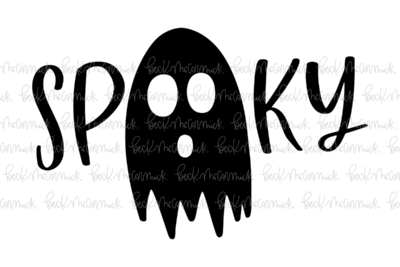 SPOOKY
Beck McCormick